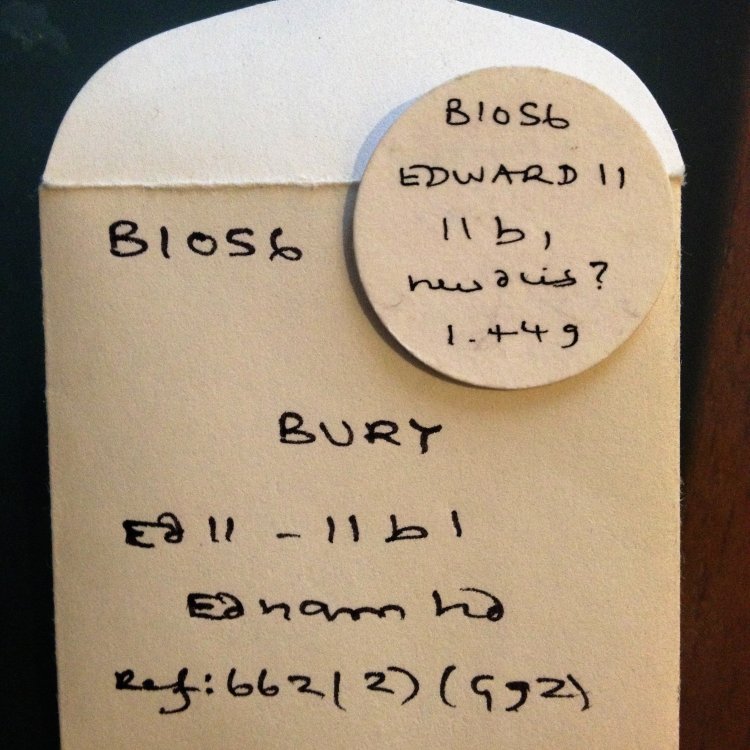 B1056
EDWARD 11
11 b 1
new dies?
1.44g
B1056
BURY
Ed 11 - 11 b 1
Ednam hd
Ref: 662(2)